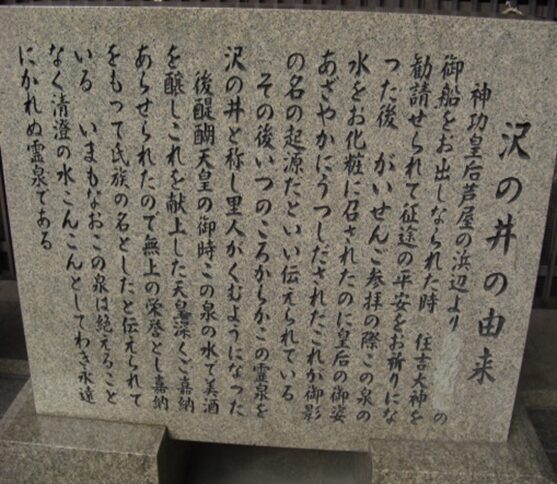 沢の井の由来
神功皇后芦屋の浜辺より の
御船をお出しなられた時 住吉大神を
勧請せられて征途の平安をお祈りにな
つた後 がいせんご参拝の際この泉の
水をお化粧に召されたのに皇后の御姿
あざやかにうつしだされたこれが御影
の名の起源だといい伝えられている
その後いつのころからかこの霊泉を
沢の井と称し里人がくむようになつた
後醍醐天皇の御時この泉の水で美酒
を醸しこれを献上した天皇深くご嘉納
あらせられたので無上の栄誉とし嘉納
をもつて氏族の名としたと伝えられて
いる いまもなおこの泉は絶えること
なく清澄の水こんこんとしてわき永遠
にかれぬ霊泉である